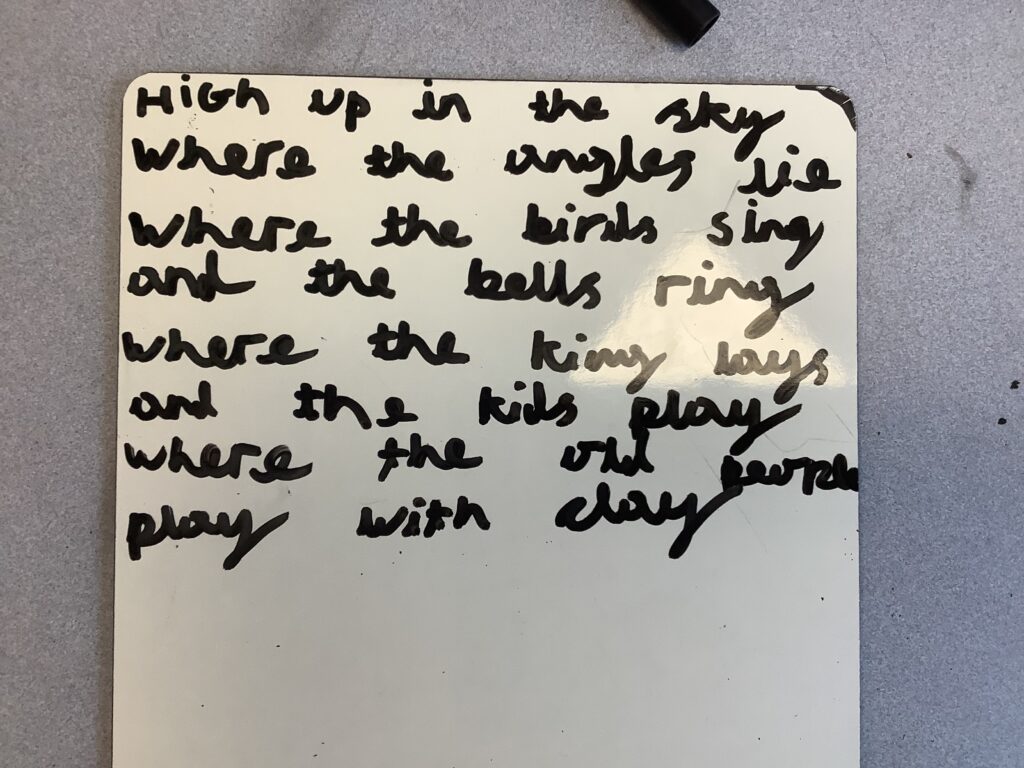 HiGh up in the sky
where the angles lie
where the birds sing
and the bells ring
where the king lays
and the kids play
where the old people
play with clay